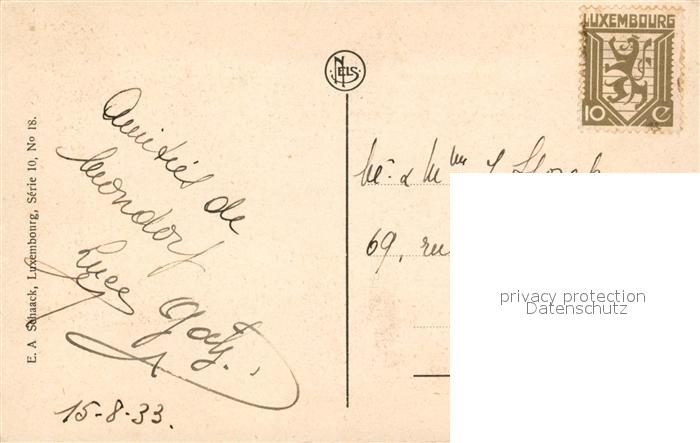 LUXEMBOURG
10 c
NELS
E. A. Schaack, Luxembourg, Série 10, No 18.
Amitiés de
Mondorf
Luce
15-8-33.
Mr & Mme
69, ru
privacy protection
Datenschutz